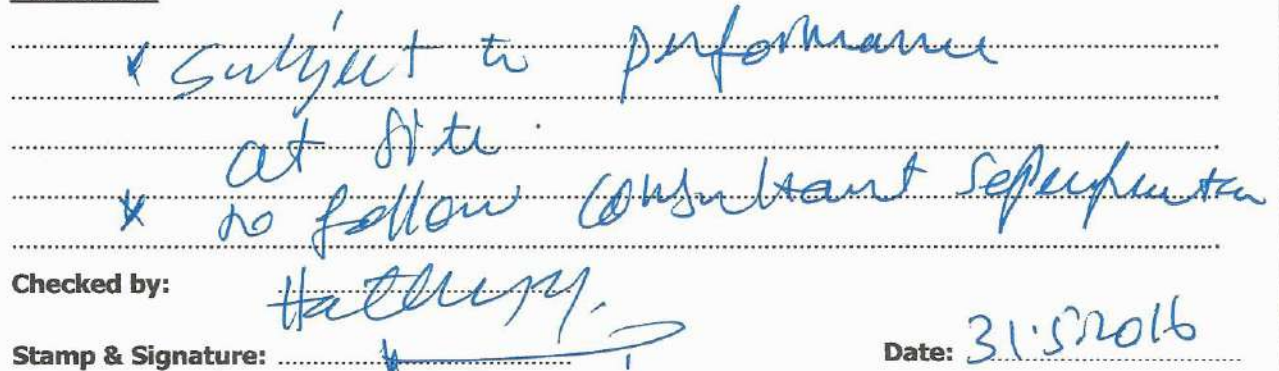 * Subject to performance
at site.
* to follow consultant
Checked by:
Stamp & Signature:
Date: 31.5.2016